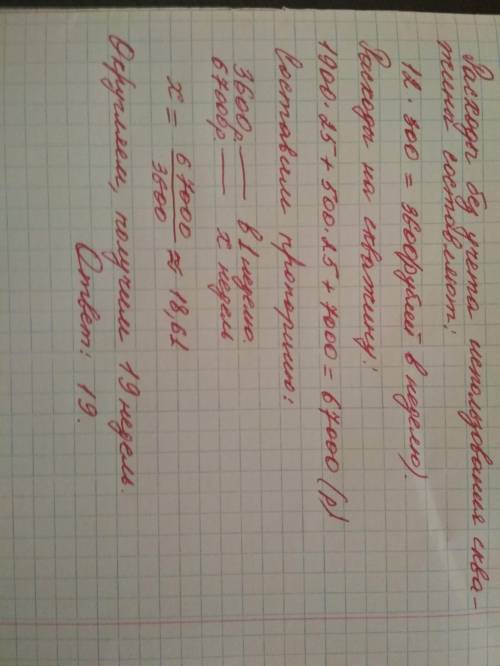 Расходы без учета использования сква-
жины составляют:
12 · 300 = 3600рублей в неделю).
Расходы на скважину:
1900 · 25 + 500 · 25 + 7000 = 67000 (р)
Составим пропорцию:
3600р. — в 1 неделю
67000р. — х недель
х = 67000/3600 ≈ 18,61
Округляем, получим 19 недель.
Ответ: 19.